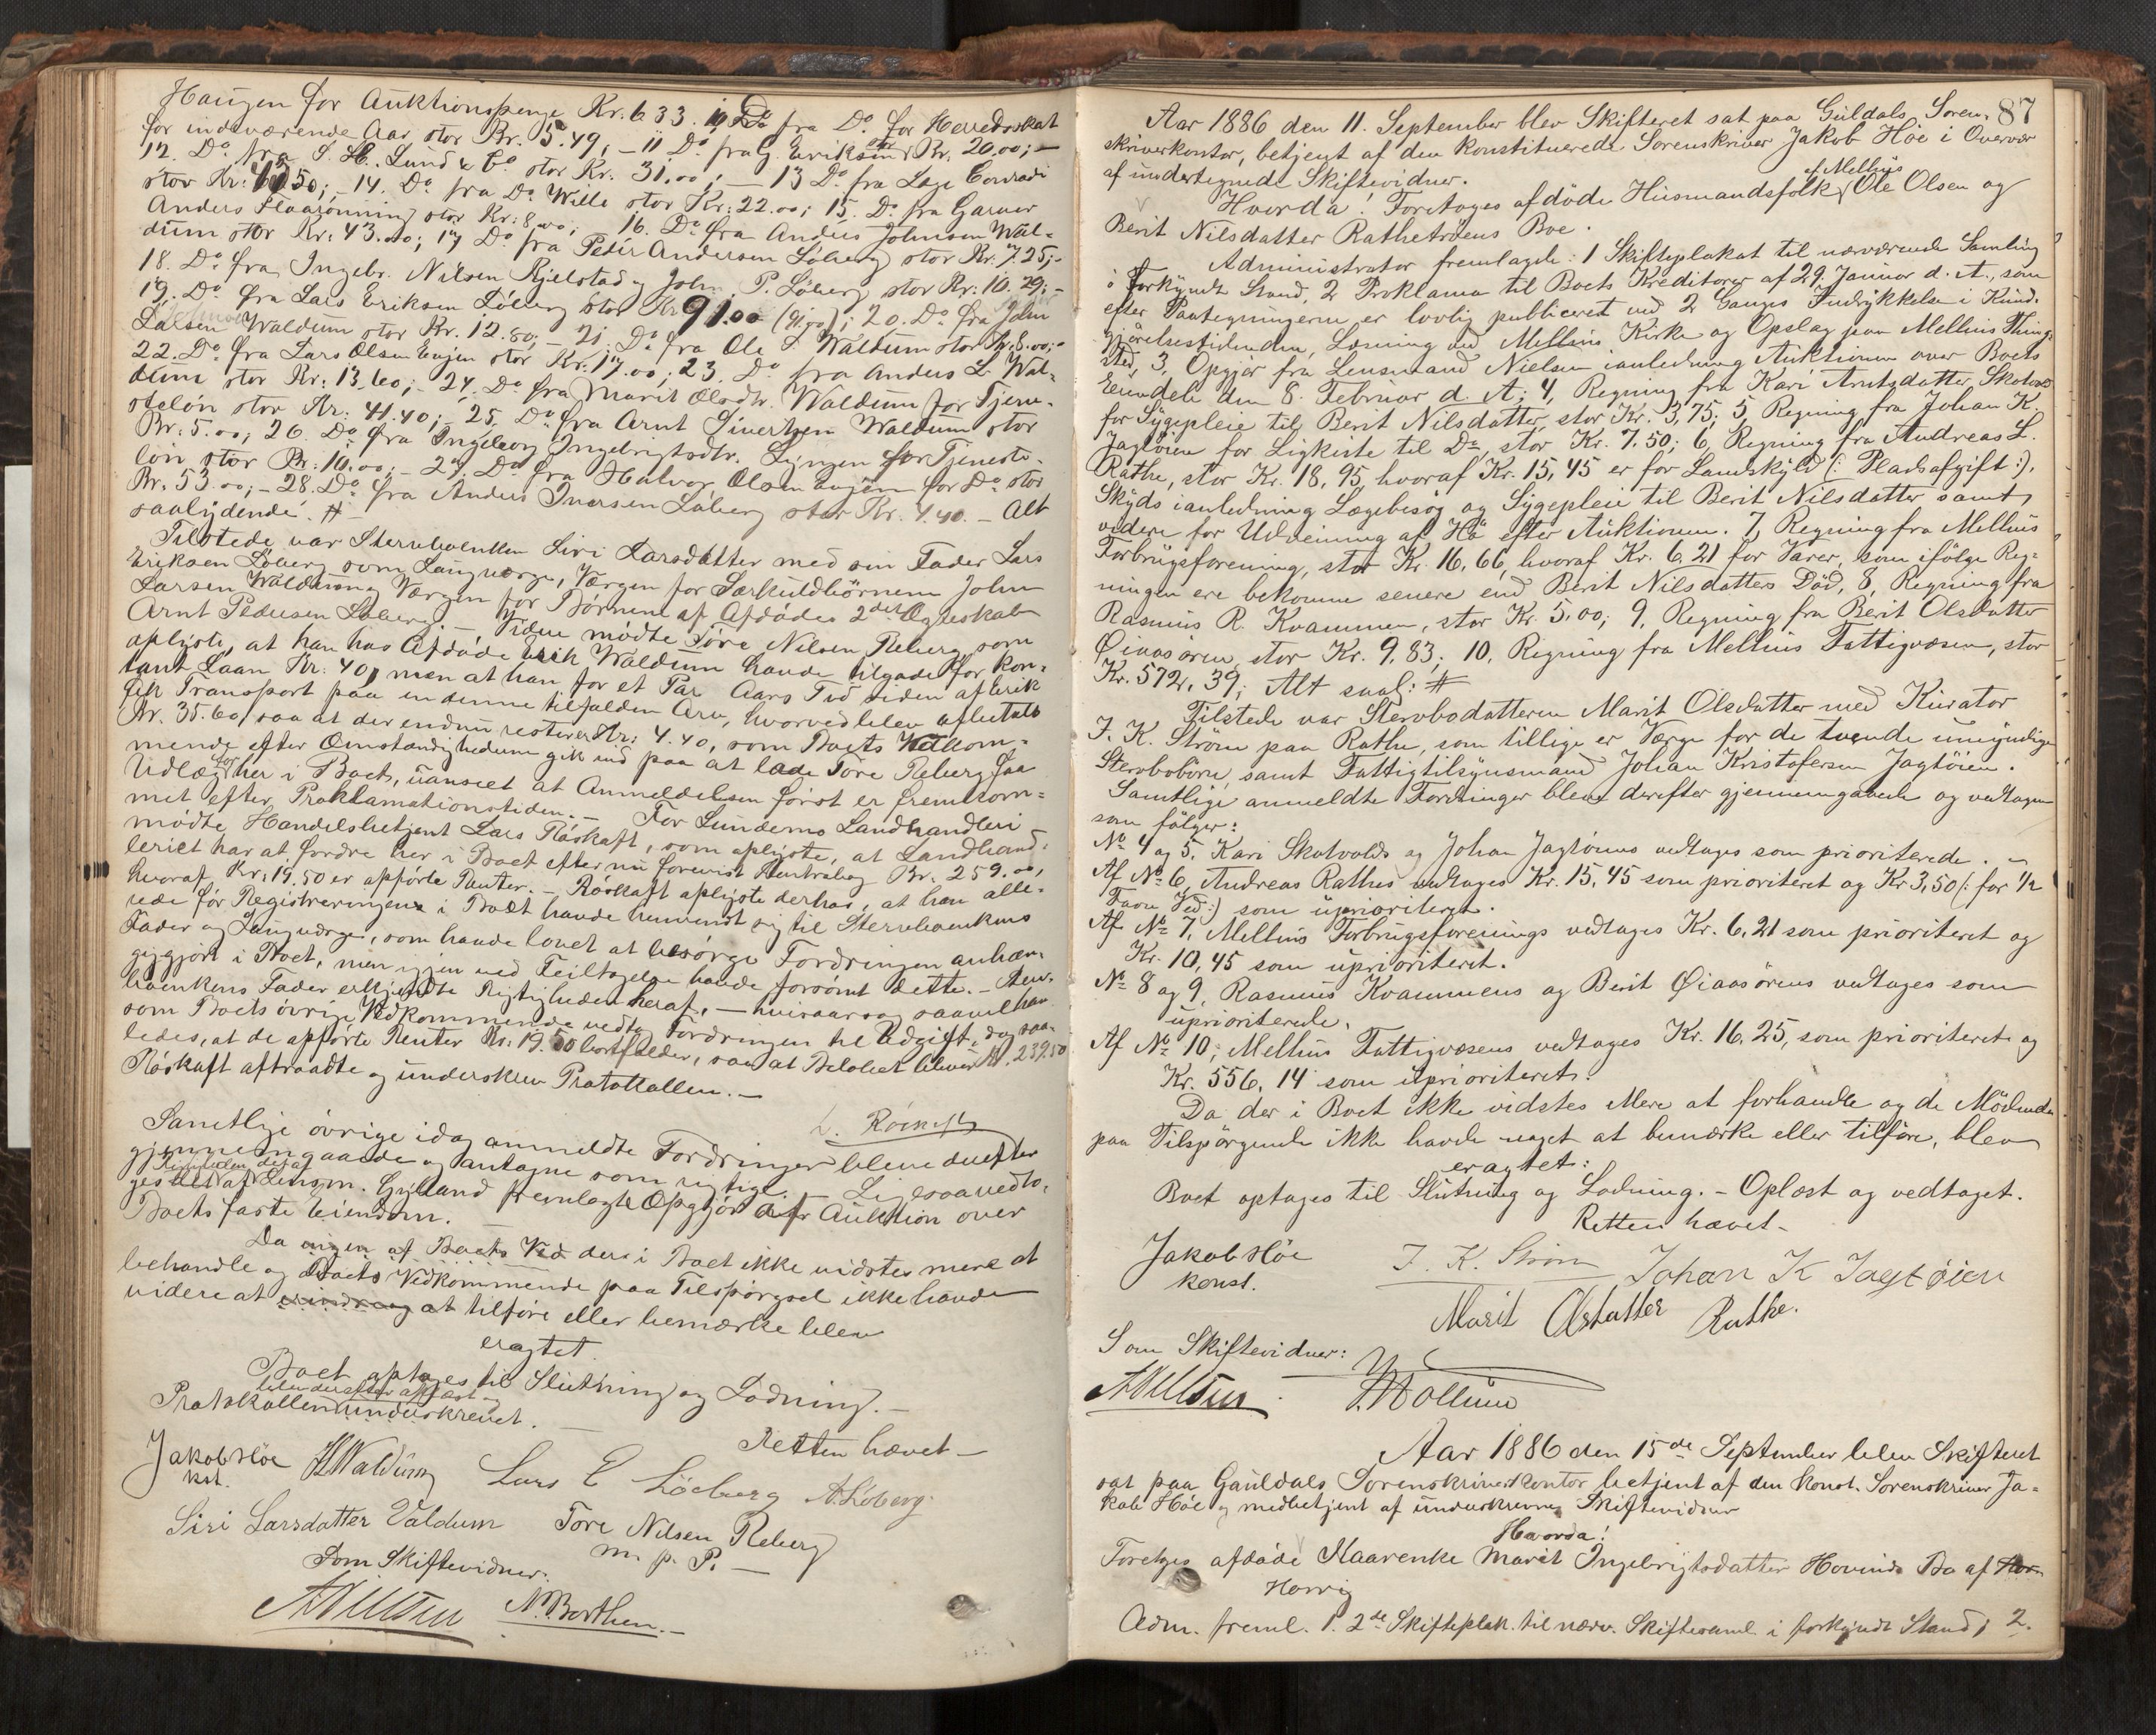 Haugen for Auktionspenge Kr. 633. 10 Do fra Do for Heredsskat
for indeværende Aar stor Kr. 5.49, – 11 Do fra G. Eriksen stor Kr. 20.00; –
12. Do fra S. H. Lund & Co stor Kr. 31.00; – 13 Do fra Lage Conradi
stor Kr: 40.50; – 14. Do fra Do Wille stor Kr: 22.00; 15. Do fra Garver
Anders Flaarönning stor Kr: 8.00; 16. Do fra Anders Johnsen Wal-
dum stor Kr: 43.00; 17 Do fra Peder Andersen Löberg stor Kr. 7.25; –
18. Do fra Ingebr. Nilsen Kjelstad og John P. Löberg stor Kr: 10.29; –
19. Do fra Lars Eriksen Löberg stor Kr 91.00 (91.00); 20. Do fra John
Larsen Waldum stor Kr. 12.80; – 21. Do fra Ole S. Waldum stor Kr. 8.00; –
22. Do fra Lars Olsen Enjen stor Kr: 17.00; 23. Do fra Anders L. Wal-
dum stor Kr: 13.60; – 24. Do fra Marit Olsdtr. Waldum for Tjene-
steløn stor Kr: 41.40; 25. Do fra Arnt Sivertsen Waldum stor
Kr: 5.00; 26. Do fra Ingeborg Ingebrigtsdtr. Lyngen for Tjeneste-
lön stor Kr: 10.00; – 27. Do fra Halvor Olsen Enjen for Do stor
Kr. 53.00; – 28. Do fra Anders Iversen Löberg stor Kr. 4.40. – Alt
saalydende. #
Tilstede var Stervboenken Siri Larsdatter med sin Fader Lars
Eriksen Löberg som Laugværge, Værgen for Særkuldbörnene John
Larsen Waldum og Værgen for Börnene af Afdödes 2det Ægteskab
Arnt Pedersen Löberg. – Videre mödte Tore Nilsen Reberg som
oplyste, at han hos Afdöde Erik Waldum havde tilgode for kon-
tant Laan Kr: 40, men at han for et Par Aars Tid siden af Erik
fik Transport paa en denne tilfalden Arv, hvorved blev afbetalt
Kr. 35.60, saa at der endnu resterer Kr: 4.40, som Boets Vedkom-
mende efter Omstændighederne gik ind paa at lade Tore Reberg faa
Udlæg for her i Boet, uanseet at Anmeldelsen först er fremkom-
met efter Proklamationstiden. – For Lundemo Landhandleri
mödte Handelsbetjent Lars Röskaft, som oplyste, at Landhand-
leriet har at fordre her i Boet efter nu forevist Kontrabog Kr. 259.00,
hvoraf Kr: 19.50 er opförte Renter. – Röskaft oplyste derhos, at han alle-
rede för Registreringen i Boet havde henvendt sig til Stervboenkens
Fader og Laugværge, som havde lovet at besörge Fordringen anhæn-
giggjort i Boet, men igjen ved Feiltagelse havde forsömt dette. – Sterv-
boenkens Fader erkjendte Rigtigheden heraf, – hvisaarsag saavel han
som Boets övrige Vedkommende vedtog Fordringen til Udgift, dog saa-
ledes, at de opförte Renter Kr: 19.50 bortfalder, saa at Beløbet bliver Kr. 239.50
Röskaft aftraadte og underskrev Protokollen. –
L. Röskaft
Samtlige övrige idag anmeldte Fordringer bleve derefter
gjennemgaaede og antagne som rigtige. – Ligesaa vedto-
Rigtigheden deraf
ges det af Lensm. Gylland fremlagte Opgjör for Auktion over
Boets faste Eiendom.
Da ingen af Boets Ved der i Boet ikke vidstes mere at
behandle og Boets Vedkommende paa Tilspörgsel ikke havde
videre at erindre og at tilföre eller bemærke blev
eragtet
Boet optages til Slutning og Lodning. –
blev derefter oplæst og
Protokollen underskrevet.
Retten hævet –
Jakob Höe
kst.
Lars E Löeberg A. Löberg.
Siri Larsdatter Valdum Tore Nilsen Reberg
m. p. P. –
Som Skiftevidner.
N. Borthen. –
87
Aar 1886 den 11. September blev Skifteret sat paa Guldals Soren-
skriverkontor, betjent af den konstituerede Sorenskriver Jakob Höe i Overvær
af undertegnede Skiftevidner.
af Melhus
Hvorda! Foretoges afdöde Husmandsfolk Ole Olsen og
Berit Nilsdatter Rathetröens Boe.
Administrator fremlagde: 1 Skifteplakat til nærværende Samling
i forkyndt Stand, 2 Proklama til Boets Kreditorer af 29. Januar d. A., som
efter Paategningerne er lovlig publiceret ved 2 Ganges Indrykkelse i Kund-
gjörelsestidenden, Læsning ved Melhus Kirke og Opslag paa Melhus Thing-
sted, 3, Opgjör fra Lensmand Nielsen ianledning Auktionen over Boets
Eiendele den 8. Februar d. A; 4, Regning fra Kari Arntsdatter Skotvold
for Sygepleie til Berit Nilsdatter, stor Kr. 3,75; 5, Regning fra Johan K.
Jagtöien for Ligkiste til Do stor Kr. 7.50; 6, Regning fra Andreas L.
Rathe, stor Kr. 18,95, hvoraf Kr. 15,45 er for Landskyld (: Pladsafgift :),
Skyds ianledning Lægebesög og Sygepleie til Berit Nilsdatter samt
videre for Udveining af Hö efter Auktionen. 7, Regning fra Melhus
Forbrugsforening, stor Kr. 16,66, hvoraf Kr. 6,21 for Varer, som ifölge Reg-
ningen ere bekomne senere end Berit Nilsdatters Död, 8, Regning fra
Rasmus R. Kvammen, stor Kr. 5,00; 9, Regning fra Berit Olsdatter
Øiaasören, stor Kr. 9,83; 10, Regning fra Melhus Fattigvæsen, stor
Kr. 572,39; Alt saal: #
Tilstede var Stervbodatteren Marit Olsdatter med Kurator
J. K. Ström paa Rathe, som tillige er Værge for de tvende umyndige
Stervbobörn, samt Fattigtilsynsmand Johan Kristofersen Jagtöien.
Samtlige anmeldte Fordringer bleve derefter gjennemgaaede og vedtagne
som fölger:
No 4 og 5, Kari Skotvolds og Johan Jagtöiens vedtages som prioriterede. –
Af No 6, Andreas Rathes vedtages Kr. 15,45 som prioriteret og Kr 3,50 (: for 1/2
Favn Ved :) som uprioriteret.
Af No 7, Melhus Forbrugsforenings vedtages Kr. 6,21 som prioriteret og
Kr. 10,45 som uprioriteret.
No 8 og 9, Rasmus Kvammens og Berit Øiaasörens vedtages som
uprioriterede.
Af No 10, Melhus Fattigvæsens vedtages Kr. 16,25, som prioriteret og
Kr. 556,14 som uprioriteret.
Da der i Boet ikke vidstes Mere at forhandle og de Mödende
paa Tilspörgende ikke havde noget at bemærke eller tilföre, blev
eragtet:
Boet optages til Slutning og Lodning. – Oplæst og vedtaget.
Retten hævet –
Jakob Höe
konst.
J. K. Ström Johan K Jagtøien
Marit Olsdatter Rathe.
Som Skiftevidner:
Aar 1886 den 15de September blev Skifteret
sat paa Gauldals Sorenskriverkontor betjent af den konst. Sorenskriver Ja-
kob Höe og medbetjent af underskrevne Skiftevidner
Hvorda!
Foretoges afdöde Kaarenke Marit Ingebrigtsdatter Hovinds Bo af Hor-
Horrig
Adm. freml. 1. 2de Skifteplak. til nærv. Skiftesaml i forkyndt Stand, 2.